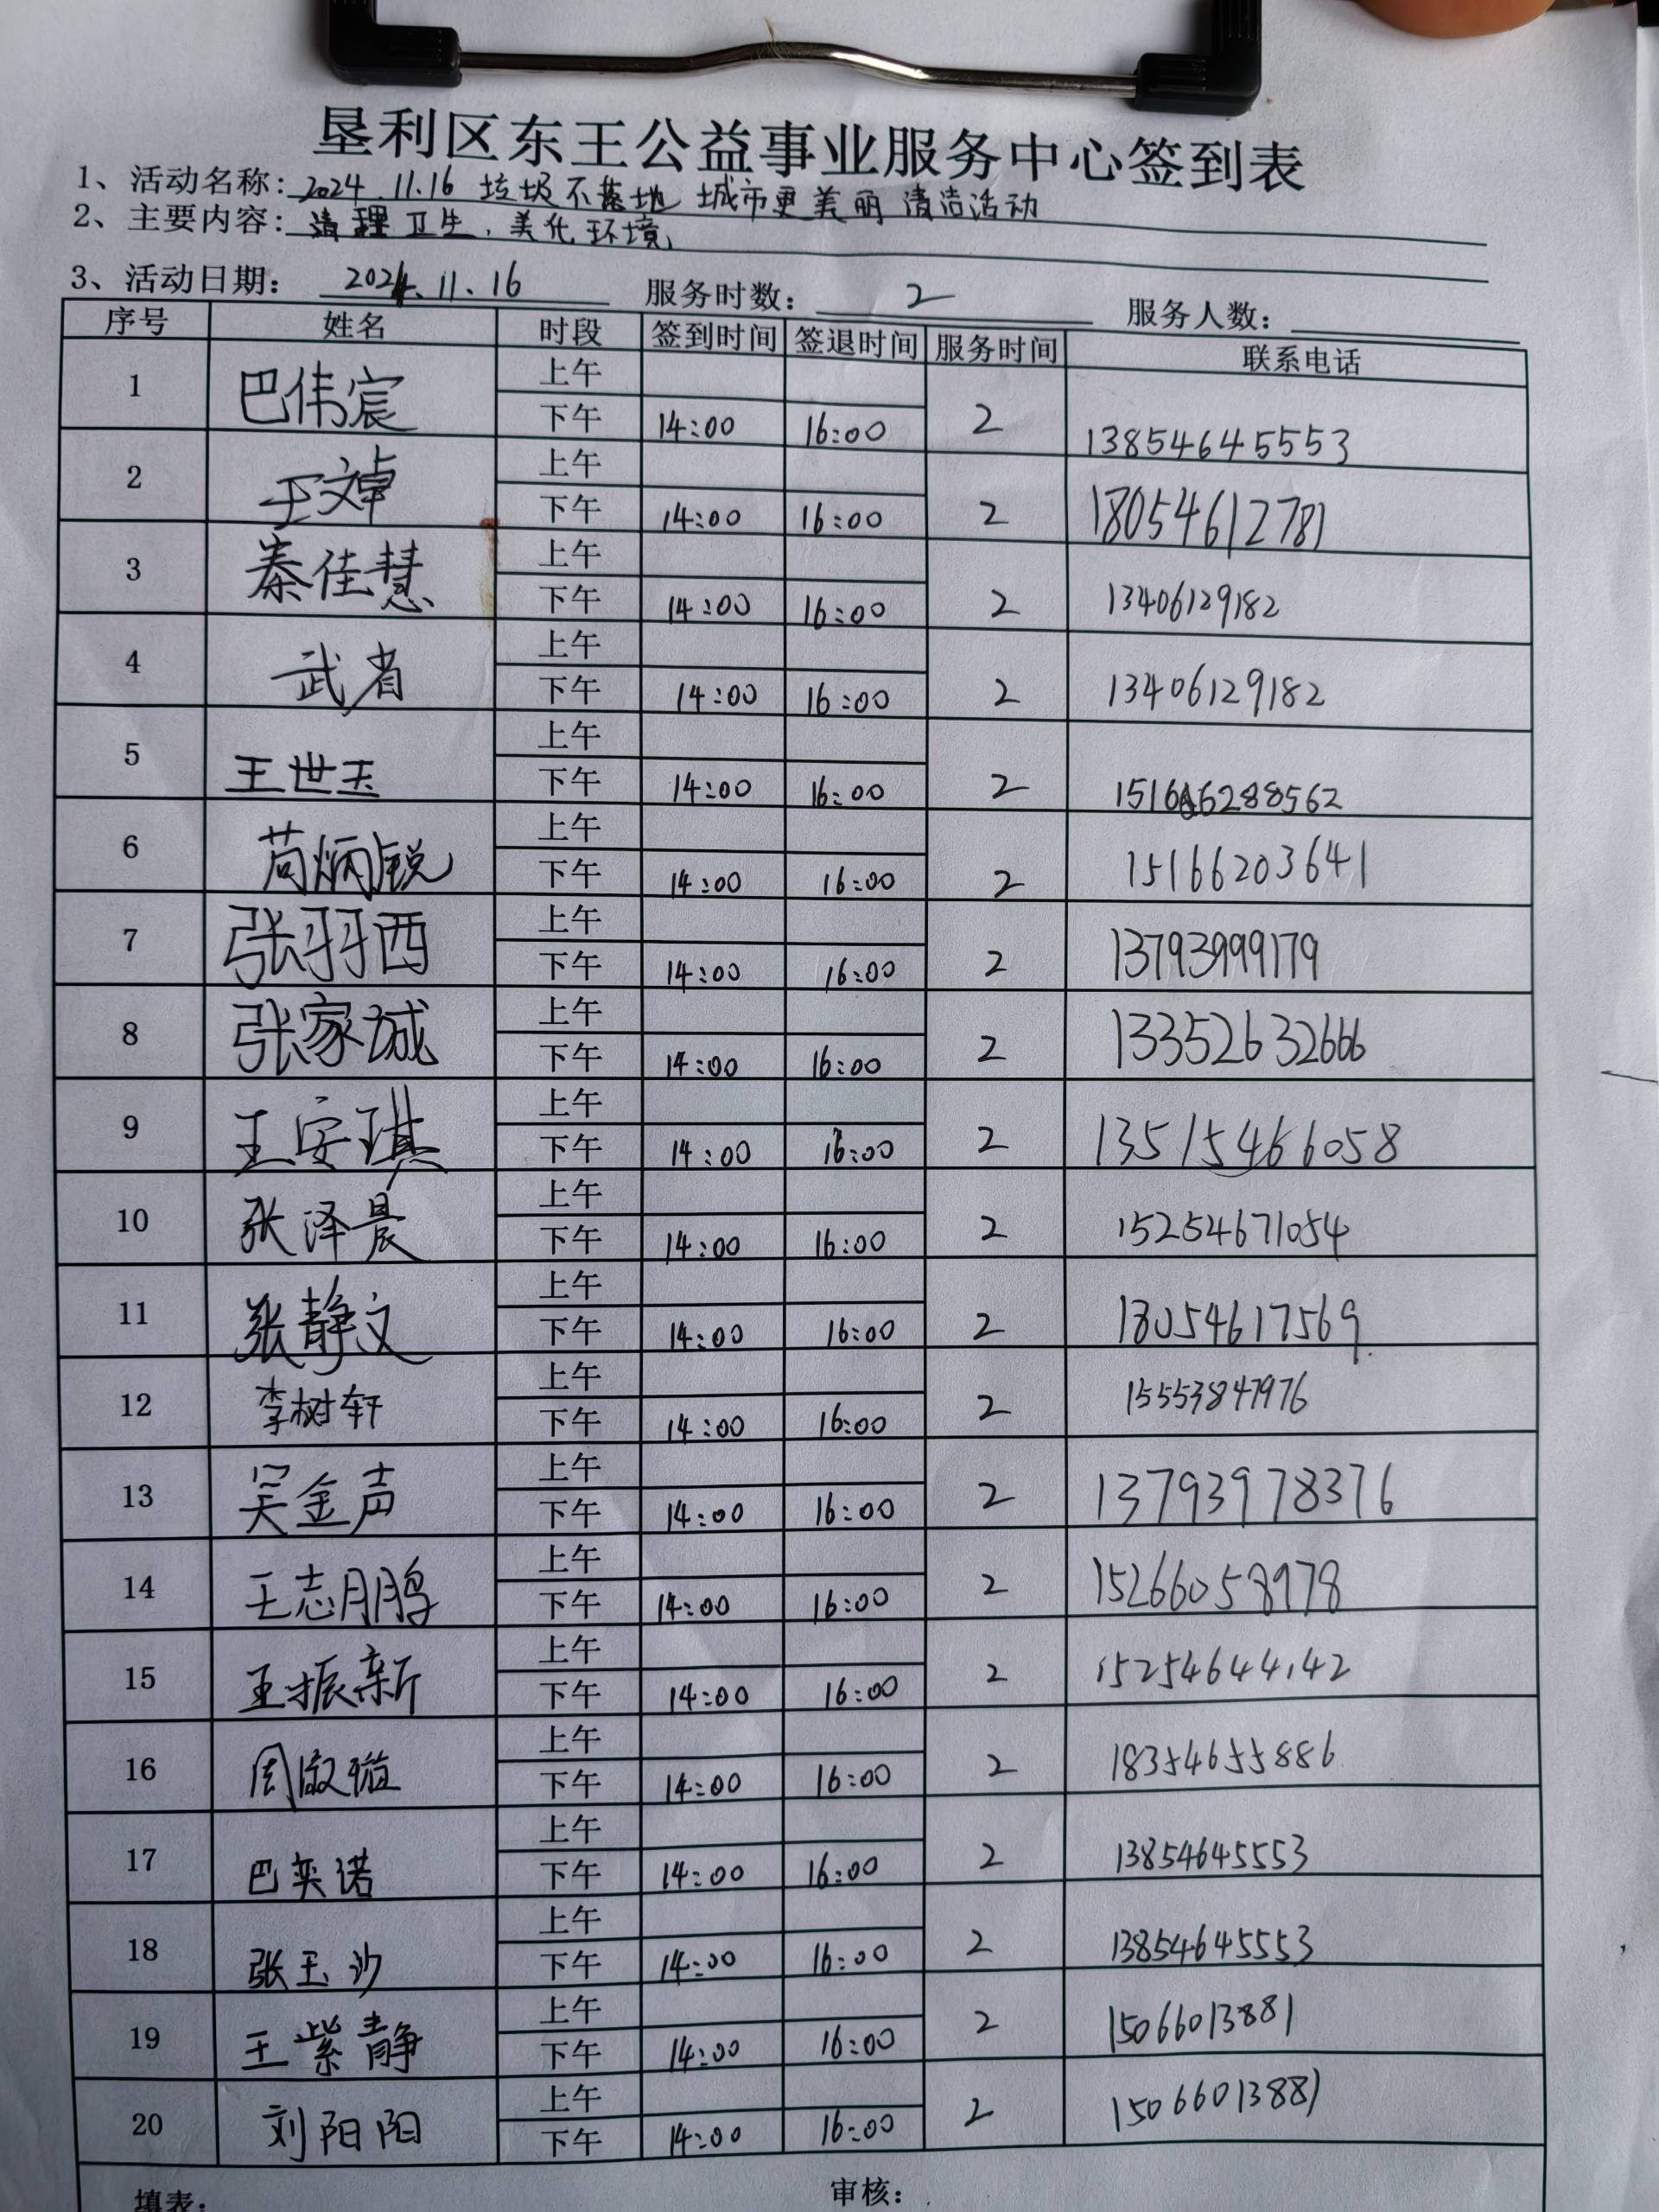 垦利区东王公益事业服务中心签到表
1、活动名称：2024.11.16 垃圾不落地 城市更美丽 清洁活动
2、主要内容：清理卫生，美化环境，
3、活动日期： 2024.11.16 服务时数： 2 服务人数：
序号 姓名 时段 签到时间 签退时间 服务时间 联系电话
1 巴伟宸 上午
下午 14:00 16:00 2 13854645553
2 王文卓 上午
下午 14:00 16:00 2 18054612781
3 秦佳慧 上午
下午 14:00 16:00 2 13406129182
4 武省 上午
下午 14:00 16:00 2 13406129182
5 王世玉 上午
下午 14:00 16:00 2
6 苟炳锐 上午
下午 14:00 16:00 2 15166203641
7 张羽西 上午
下午 14:00 16:00 2 13793999179
8 张家诚 上午
下午 14:00 16:00 2 13352632666
9 王安琪 上午
下午 14:00 16:00 2 13515466058
10 张泽晨 上午
下午 14:00 16:00 2 15254671054
11 张静文 上午
下午 14:00 16:00 2 18054617569
12 李树轩 上午
下午 14:00 16:00 2 15553847976
13 吴金声 上午
下午 14:00 16:00 2 13793978376
14 王志鹏 上午
下午 14:00 16:00 2 15266058978
15 王振新 上午
下午 14:00 16:00 2 15254644142
16 上午
下午 14:00 16:00 2 18354655886
17 巴奕诺 上午
下午 14:00 16:00 2 13854645553
18 张玉沙 上午
下午 14:00 16:00 2 13854645553
19 王紫静 上午
下午 14:00 16:00 2 15066013881
20 刘阳阳 上午
下午 14:00 16:00 2 15066013881
填表： 审核：